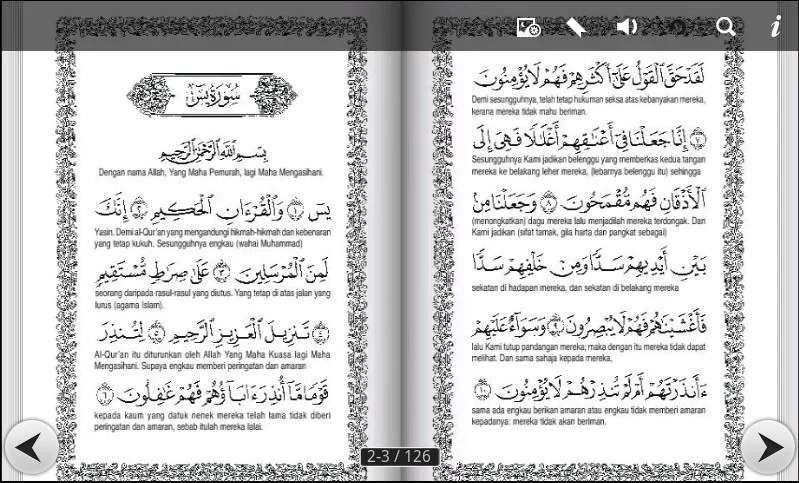 سُورَةُ يس
بِسْمِ اللَّهِ الرَّحْمَٰنِ الرَّحِيمِ
Dengan nama Allah, Yang Maha Pemurah, lagi Maha Mengasihani.
يسٓ ١ وَالْقُرْءَانِ الْحَكِيمِ ٢ إِنَّكَ
Yasin. Demi al-Qur'an yang mengandungi hikmah-hikmah dan kebenaran
yang tetap kukuh. Sesungguhnya engkau (wahai Muhammad)
لَمِنَ الْمُرْسَلِينَ ٣ عَلَىٰ صِرَاطٍ مُّسْتَقِيمٍ
seorang daripada rasul-rasul yang diutus. Yang tetap di atas jalan yang
lurus (agama Islam).
٤ تَنزِيلَ الْعَزِيزِ الرَّحِيمِ ٥ لِتُنذِرَ
Al-Qur'an itu diturunkan oleh Allah Yang Maha Kuasa lagi Maha
Mengasihani. Supaya engkau memberi peringatan dan amaran
قَوْمًا مَّا أُنذِرَ ءَابَاؤُهُمْ فَهُمْ غَٰفِلُونَ ٦
kepada kaum yang datuk nenek mereka telah lama tidak diberi
peringatan dan amaran, sebab itulah mereka lalai.
لَقَدْ حَقَّ الْقَوْلُ عَلَىٰ أَكْثَرِهِمْ فَهُمْ لَا يُؤْمِنُونَ
Demi sesungguhnya, telah tetap hukuman seksa atas kebanyakan mereka,
kerana mereka tidak mahu beriman.
٧ إِنَّا جَعَلْنَا فِي أَعْنَٰقِهِمْ أَغْلَٰلًا فَهِيَ إِلَى
Sesungguhnya Kami jadikan belenggu yang memberkas kedua tangan
mereka ke belakang leher mereka, (lebarnya belenggu itu) sehingga
الْأَذْقَانِ فَهُم مُّقْمَحُونَ ٨ وَجَعَلْنَا مِنْ
(menongkatkan) dagu mereka lalu menjadilah mereka terdongak. Dan
Kami jadikan (sifat tamak, gila harta dan pangkat sebagai)
بَيْنِ أَيْدِيهِمْ سَدًّا وَمِنْ خَلْفِهِمْ سَدًّا
sekatan di hadapan mereka, dan sekatan di belakang mereka
فَأَغْشَيْنَٰهُمْ فَهُمْ لَا يُبْصِرُونَ ٩ وَسَوَاءٌ عَلَيْهِمْ
lalu Kami tutup pandangan mereka; maka dengan itu mereka tidak dapat
melihat. Dan sama sahaja kepada mereka,
ءَأَنذَرْتَهُمْ أَمْ لَمْ تُنذِرْهُمْ لَا يُؤْمِنُونَ ١٠
sama ada engkau berikan amaran atau engkau tidak memberi amaran
kepadanya: mereka tidak akan beriman.
2-3 / 126